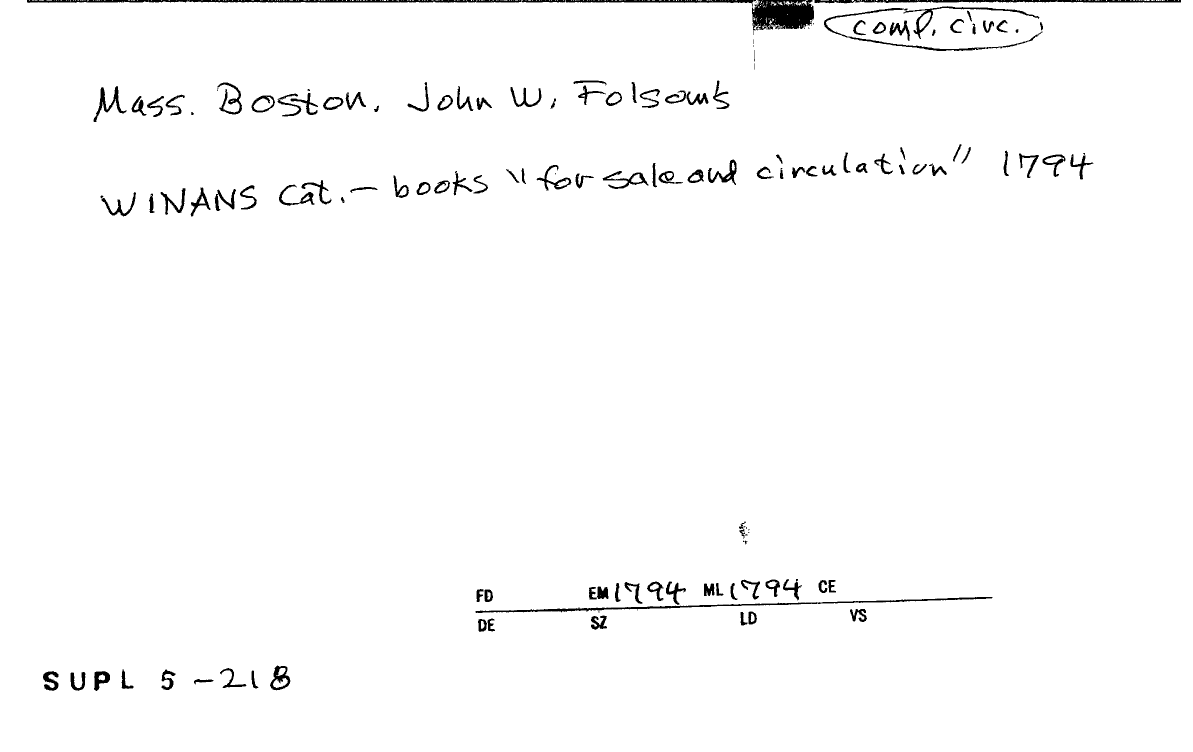 comp. circ.
Mass. Boston. John W. Folsom's
WINANS Cat. - books "for sale and circulation" 1794
FD EM 1794 ML 1794 CE
DE SZ LD VS
SUPL 5 - 218